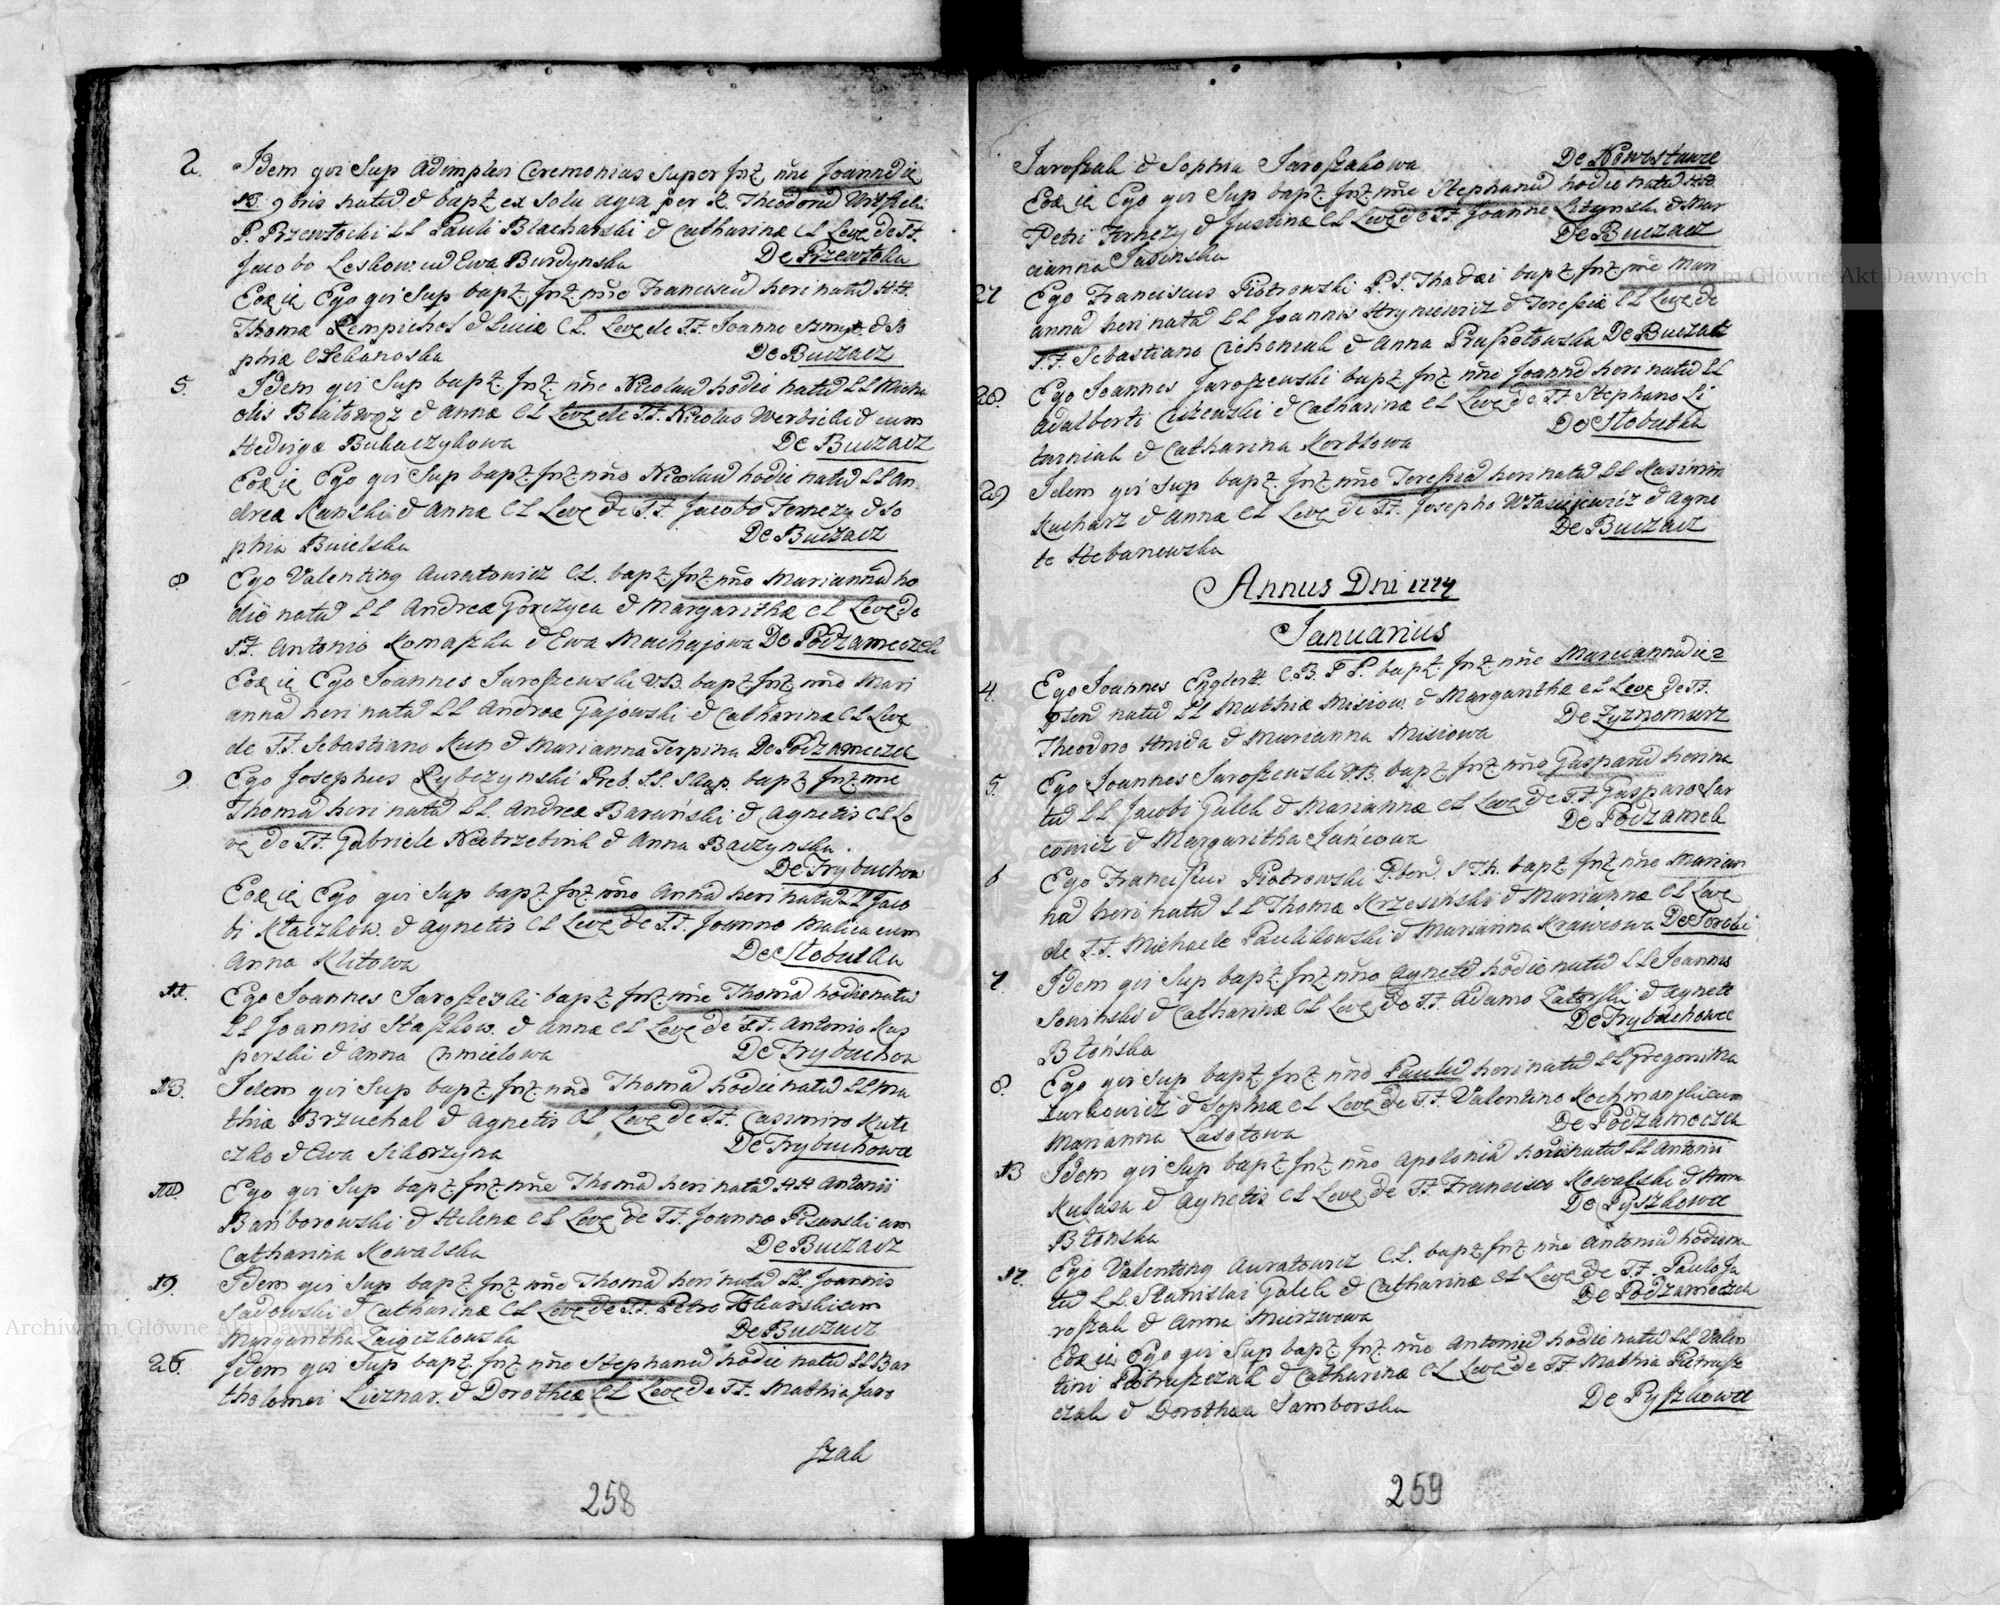 2. Idem qvi Sup Adimplevi Ceremonias Super Inf: nñe Joannẽ die
18. 9bris natũ & bapt: ex Sola aqva per R. Theodorũ
P. Przewłocki LL Pauli Blacharski & Catharinæ CL Leve de FF.
Jacobo Leskow. cũ Ewa Burdynska De Przewłoka
Eox ie Ego qvi Sup bapt: Inf: nñe Franciscũ heri natũ HH.
Thomæ Rempichel & Luciæ CL. Leve de FF Joanne & So
phiæ Czekanoska De Buczacz
5. Idem qvi Sup bapt: Inf: nñe Nicolaũ hodie natũ LL Micha
elis & Annæ CL Leve de FF. Nicolao Werbicki & cum
Hedviga Bukaczykowa De Buczacz
Eox ie Ego qvi Sup bapt: Inf: nño Nicolaũ hodie natũ LL An
dreæ Kanski & Annæ CL Leve de FF Jacobo Fernezy & So
phia Buielska De Buczacz
8 Ego Valentinq Auratowicz C.L. bapt: Inf: nño Mariannã ho
die natã LL Andreæ Gorczyca & Margarithæ CL Leve de
FF. Antonio Komaszka & Ewa Machajowa De Podzameczek
Eox ie Ego Joannes Jaroszewski V.B. bapt: Inf: nñe Mari
annã heri natã LL Andreæ Gajowski & Catharinæ CL Leve
de FF Sebastiano Kuh & Marianna Terpina De Podzameczek
9. Ego Josephus Rybczynski Præb. SS. Skap. bapt: Inf: nñe
Thomã heri natũ LL. Andreæ Baruński & Agnetis CL Le
ve de FF. Gabriele Nastrzebink & Anna Baczynska.
De Trybuchow
Eox ie Ego qvi Sup bapt: Inf: nñe Annã heri natã LL Jaco
bi Kłaczkow. & Agnetis CL Leve de FF. Joanne Malica cum
Anna Klitowa De Słobutka
11. Ego Joannes Jaroszewski bapt: Inf: nñe Thomã hodie natũ
LL Joannis Staszkow. & Annæ CL Leve de FF. Antonio Kas
perski & Anna Chmielowa De Trybuchow
13. Idem qvi Sup bapt: Inf: nño Thomã hodie natũ LL Ma
thiæ Brzuchal & Agnetis CL Leve de FF. Casimiro Kute
czko & Ewa Sikorzyna De Trybuchowce
Ego qvi Sup bapt: Inf: nñe Thomã heri natũ HH Antonii
Bamborowski & Helenæ CL Leve de FF. Joanne Pisarski cum
Catharina Kowalska De Buczacz
19. Idem qvi Sup bapt: Inf: nñe Thomã heri natũ LL Joannis
Sadowski & Catharinæ CL Leve de FF. Petro cum
Margaritha De Buczacz
26. Idem qvi Sup bapt: Inf: nñe Stephanũ hodie natũ LL Bar
tholomei Licznar. & Dorotheæ CL Leve de FF. Mathia Jaro
szak
258
Jaroszak & Sophia Jaroszakowa De Nowostawce
Eox ie Ego qvi Sup bapt: Inf: nñe Stephanũ hodie natũ HH.
Petri Fernezy & Justinæ CL Leve de FF. Joanne Lityński & Mar
cianna Jasinska De Buczacz
27 Ego Franciscus Piotrowski P. S. Thadæi bapt: Inf: nñe Mari
annã heri natã LL Joannis Hryniewicz & Teressiæ CL Leve de
FF. Sebastiano Cichoniak & Anna De Buczacz
28. Ego Joannes Jaroszewski bapt: Inf: nñe Joannẽ heri natũ LL
Adalberti Ciszewski & Catharinæ CL Leve de FF Stephano Li
tarniak & Catharina Korblowa De Słobutka
29 Idem qvi Sup bapt: Inf: nñe Teressiã heri natã LL Kasimiri
Kucharz & Annæ CL Leve de FF. Josepho Własiejewicz & Agne
te Hebanowska De Buczacz
Annus Dni 1774
Januarius
4. Ego Joannes Englertt C.B. P.P. bapt: Inf: nñe Mariannã die 2
natã LL Mathiæ Misiow. & Margarithæ CL Leve de FF.
Theodoro Hnida & Marianna Misiowa De Zyznomierz
5. Ego Joannes Jaroszewski V.B. bapt: Inf: nño Gasparũ heri na
tũ LL Jacobi Galek & Mariannæ CL Leve de FF Gasparo Jar
cowicz & Margaritha Jańcowa De Podzamek
6 Ego Franciscus Piotrowski P. ben. S Th. bapt: Inf: nñe Marian
nã heri natã LL Thomæ Krzesiński & Mariannæ CL Leve
de FF. Michaele Paulikowski & Marianna Krawcowa De Soroki
7. Idem qvi Sup bapt: Inf: nñe Agnetẽ hodie natã LL Joannis
Sowiński & Catharinæ CL Leve de FF. Adamo Zatorski & Agnete
Błońska De Trybuchowce
8. Ego qvi Sup bapt: Inf: nñe Paulũ heri natũ LL Gregorii Ma
zurkowicz & Sophiæ CL Leve de FF Valentino Kochmanski cum
Marianna Lasotowa De Podzameczek
13 Idem qvi Sup bapt: Inf: nño Apoloniã hodie natã LL Antonii
Kulasa & Agnetis CL Leve de FF Francisco Kowalski & Anna
Błonska De Pyszkowce
17. Ego Valentinq Auratowicz C.L. bapt: Inf: nñe Antoniũ hodie na
tũ LL. Stanislai Galek & Catharinæ CL Leve de FF. Paulo Ja
roszak & Anna Mierzwowa De Podzameczek
Eox ie Ego qvi Sup bapt: Inf: nñe Antoniũ hodie natũ LL Valen
tini Pietruszczak & Catharinæ CL Leve de FF Mathia Pietrusz
czak & Dorothea Samborska De Pyszkowce
259
Archiwum Główne Akt Dawnych
Archiwum Główne Akt Dawnych